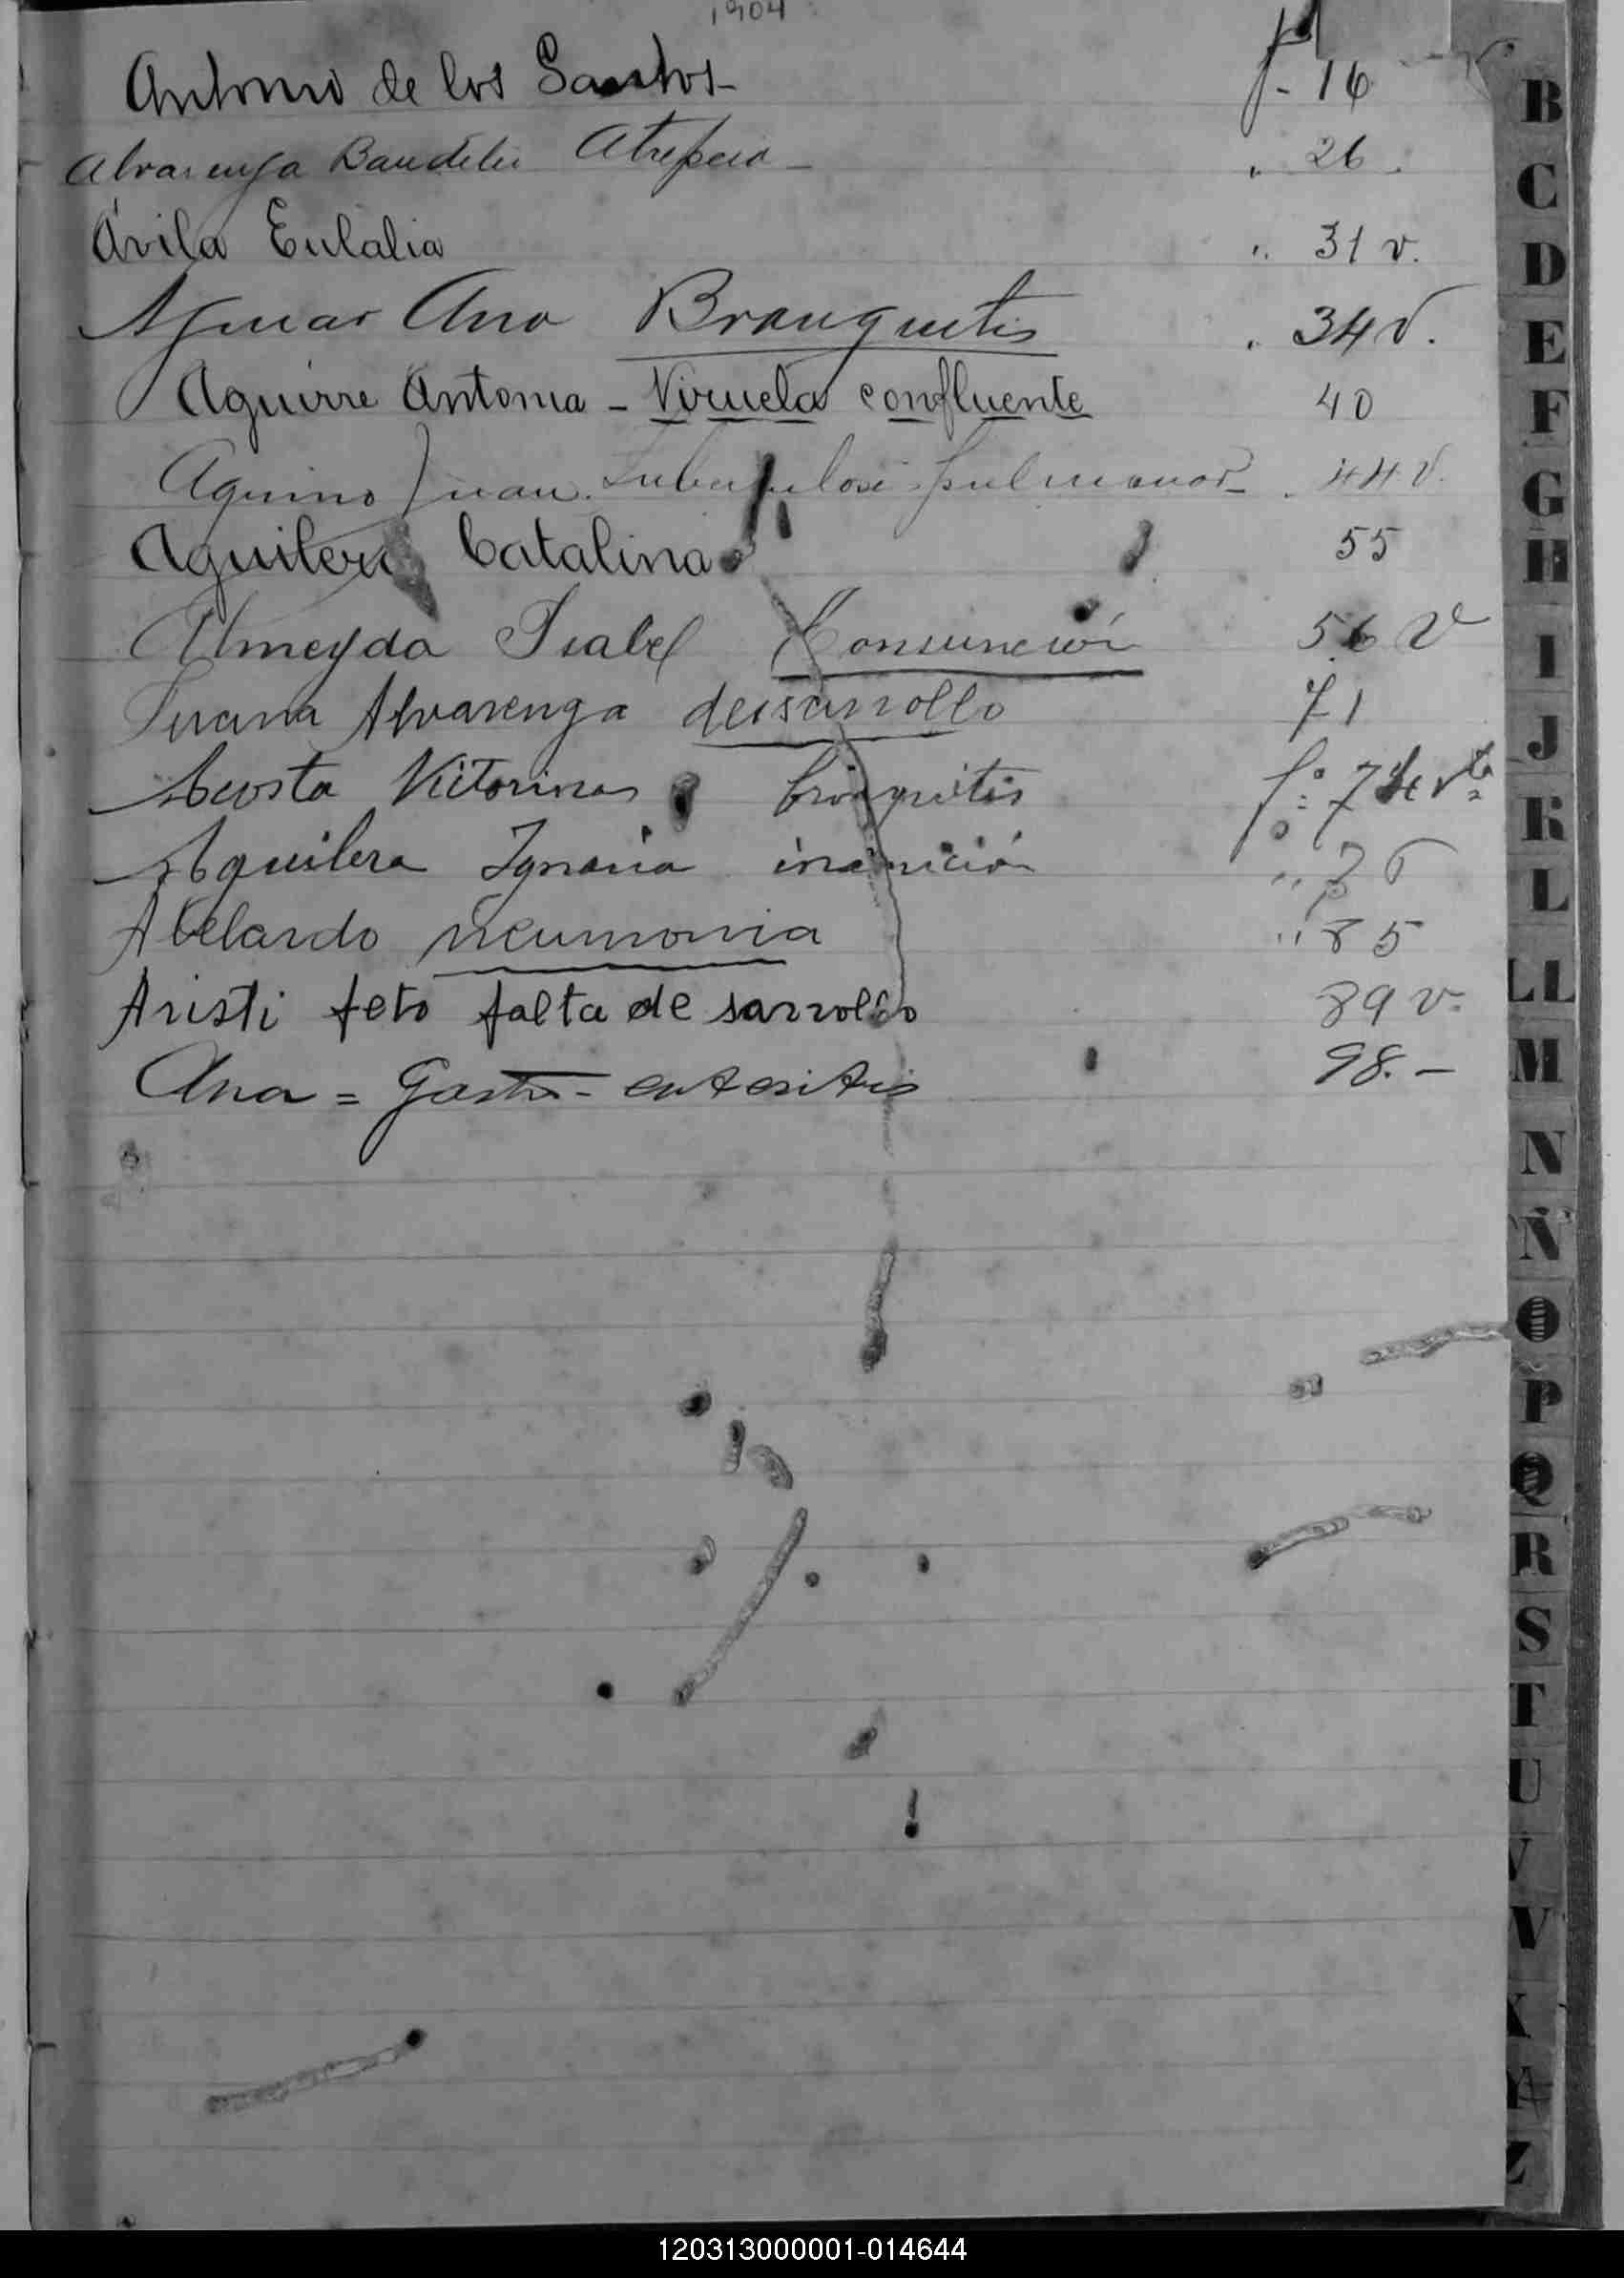 1904
Antonio de los Santos - f. 16
Alvarenga Baudilia Atrepcia - " 26.
Ávila Eulalia " 31 v.
Ana Bronquitis " 34 v.
Aguirre Antonia - Viruela confluente 40
Aquino Juan. Tuberculosis pulmonar - " 44 v.
Aguilera Catalina 55
Almeyda Isabel Consunción 56 v
Juana Alvarenga desarrollo 71
Acosta Victorina bronquitis fº 74 vta
Aguilera Ignacia inanición " 76
Abelardo neumonia " 85
Aristi feto falta de sarrollo 89 v.
Ana = Gastro-enteritis 98. -
B
C
D
E
F
G
H
I
J
K
L
LL
M
N
Ñ
O
P
Q
R
S
T
U
V
X
Y
Z
120313000001-014644